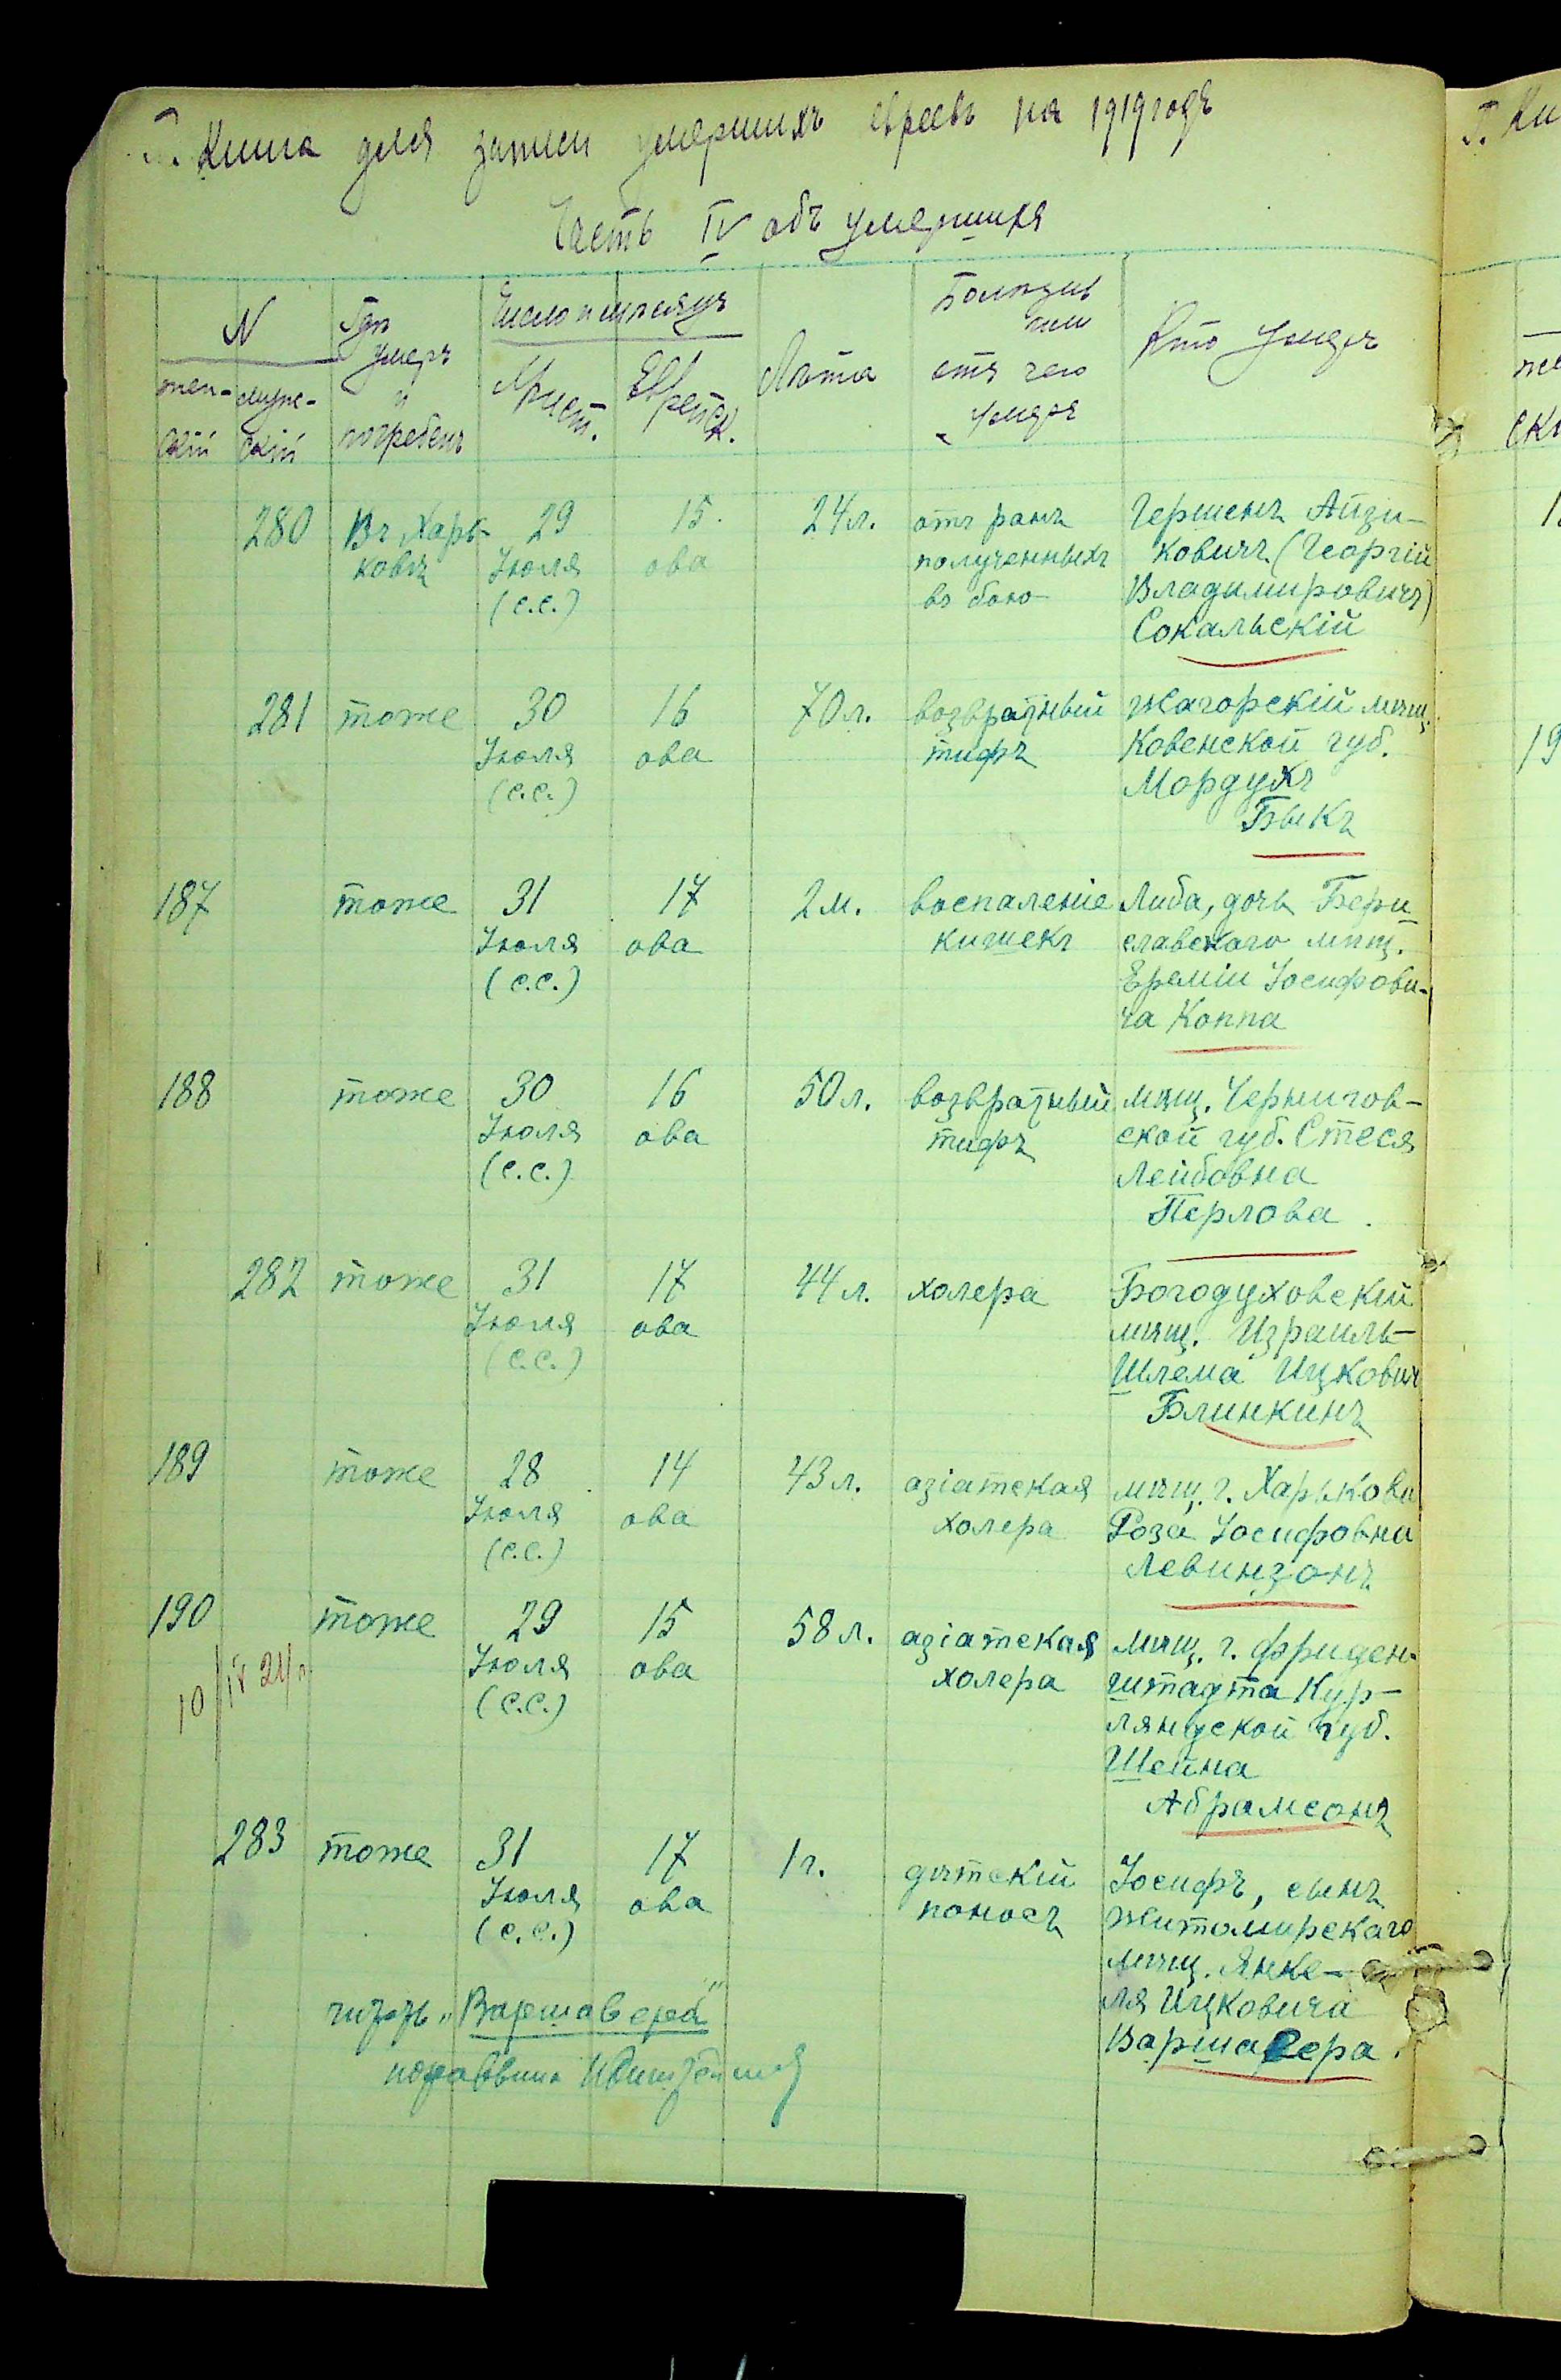 Книга для записи умершихъ евреевъ на 1919 годъ
Часть IV объ умершихъ
N
жен-
скій
муже-
скій
Гдѣ
умеръ
и
погребенъ
Число и мѣсяцъ
Христ.
Еврейск.
Лѣта
Болѣзнь
или
отъ чего
умеръ
Кто умеръ
280
Въ Харь-
ковѣ
29
Іюля
(с.с.)
15
ова
24 л.
отъ ранъ
полученныхъ
въ бою
Гершенъ Айзи-
ковичъ (Георгій
Владимировичъ)
Сокальскій
281
тоже
30
Іюля
(с.с.)
16
ова
70 л.
возвратный
тифъ
Жагорскій мѣщ.
Ковенской губ.
Мордухъ
Быкъ
187
тоже
31
Іюля
(с.с.)
17
ова
2 м.
воспаленіе
кишекъ
Либа, дочь Бери-
славскаго мѣщ.
Ереміи Іосифови-
ча Коппа
188
тоже
30
Іюля
(с.с.)
16
ова
50 л.
возвратный
тифъ
мѣщ. Чернигов-
ской губ. Стеся
Лейбовна
Перлова
282
тоже
31
Іюля
(с.с.)
17
ова
44 л.
холера
Богодуховскій
мѣщ. Израиль-
Шлема Ицкович
Блинкинъ
189
тоже
28
Іюля
(с.с.)
14
ова
43 л.
азіатская
холера
мѣщ. г. Харькова
Роза Іосифовна
Левинзонъ
190
10/IV 24 г.
тоже
29
Іюля
(с.с.)
15
ова
58 л.
азіатская
холера
мѣщ. г. Фриден-
штадта Кур-
ляндской губ.
Шейна
Абрамсонъ
283
тоже
31
Іюля
(с.с.)
17
ова
1 г.
дѣтскій
поносъ
Іосифъ, сынъ
Житомирскаго
мѣщ. Янке-
ля Ицковича
Варшавера
"Варшавера"